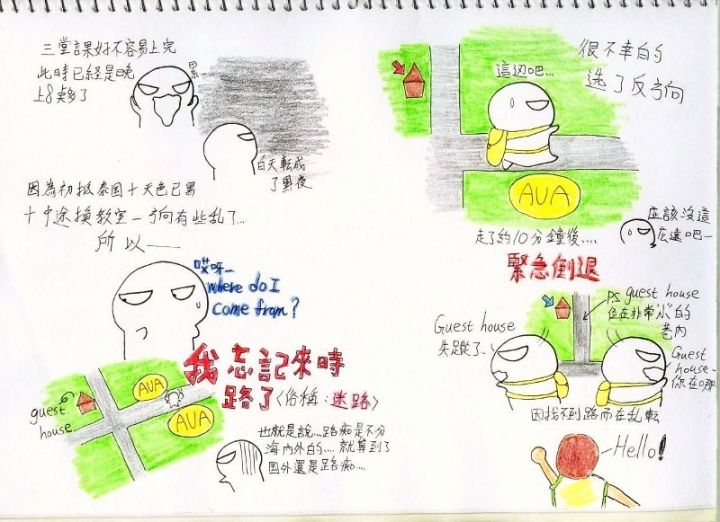 三堂課好不容易上完
此時已經是晚
上8点多了
累...
白天転成
了黑夜
因為初抵泰国十天色已黑
十中途換教室－方向有些乱了...
所以──
哎呀...
where do I
come from?
我忘記來時
路了〈俗稱:迷路〉
guest
house
AUA
AUA
也就是說...路痴是不分
海內外的....就算到了
国外還是路痴...
很不幸的
選了反方向
這边吧...
AUA
走了約10分鐘後....
应該没這
広遠吧...
緊急倒退
ps guest house
位在非常小的
巷內
Guest house
失蹤了...
Guest
house-
你在哪
因找不到路而在乱転
Hello!